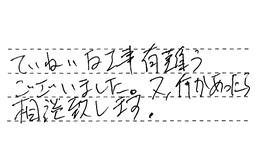 ていねいな工事有難う
ございました。又、何かあったら
相談致します。